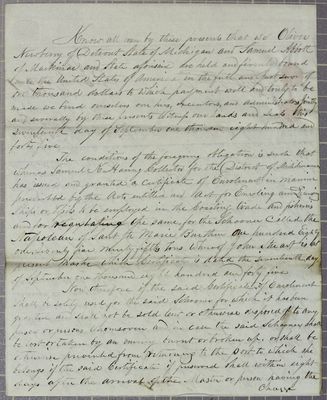 Know all men by these presents that we Oliver
Newberry of Detroit State of Michigan and Samuel Abbott
of Mackinac and State aforesaid are held and firmly bound
unto the United States of America in the full and just sum of
one thousand dollars to which payment well and truly to be
made we bind ourselves our heirs, executors, and administrators jointly
and severally by these presents Witness our hands and seals this
Seventeenth day of September one thousand eight hundred and
forty five.
The conditions of the foregoing obligation is such that
Whereas Samuel K. Haring Collector for the District of Michilimackinac
has issued and granted a Certificate of Enrolment in manner
prescribed by the Acts entitled an Act for Enroling and
Ships or Vessels to be employed in the Coasting trade and fisheries
and for regulating the same, for the Schooner Called the
Napoleon of Sault Ste Marie Burthen One hundred Eighty
ninety fifths tons Whereof John Stewart is at
present Master which Certificate is dated the Seventeenth day
of September one thousand eight hundred and forty five
Now therefore if the said Certificate of Enrolment
Shall be solely used for the said Schooner for which it has been
granted and shall not be sold lent or otherwise disposed of to any
person or persons whomsoever and in case the said Schooner shall
be lost or taken by an enemy burnt or broken up, or shall be
otherwise prevented from returning to the Port to which she
belongs if the said Certificate if preserved Shall within eight
days after the arrival of the Master or person having the
Charge